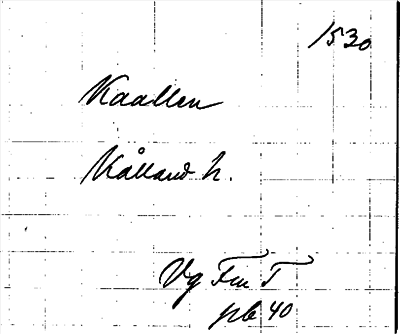 1530
Kaallen
Kålland h.
Vg Fm T
pb 40